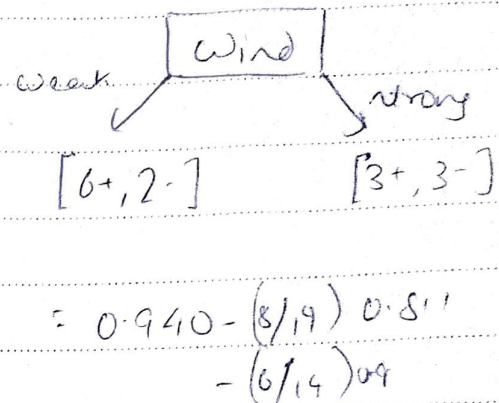 Wind
weak strong
[6+, 2-] [3+, 3-]
= 0.940 - (8/14) 0.811
- (6/14)